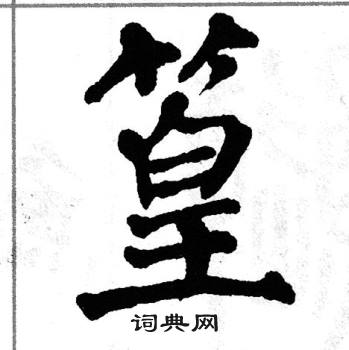 篁
词典网